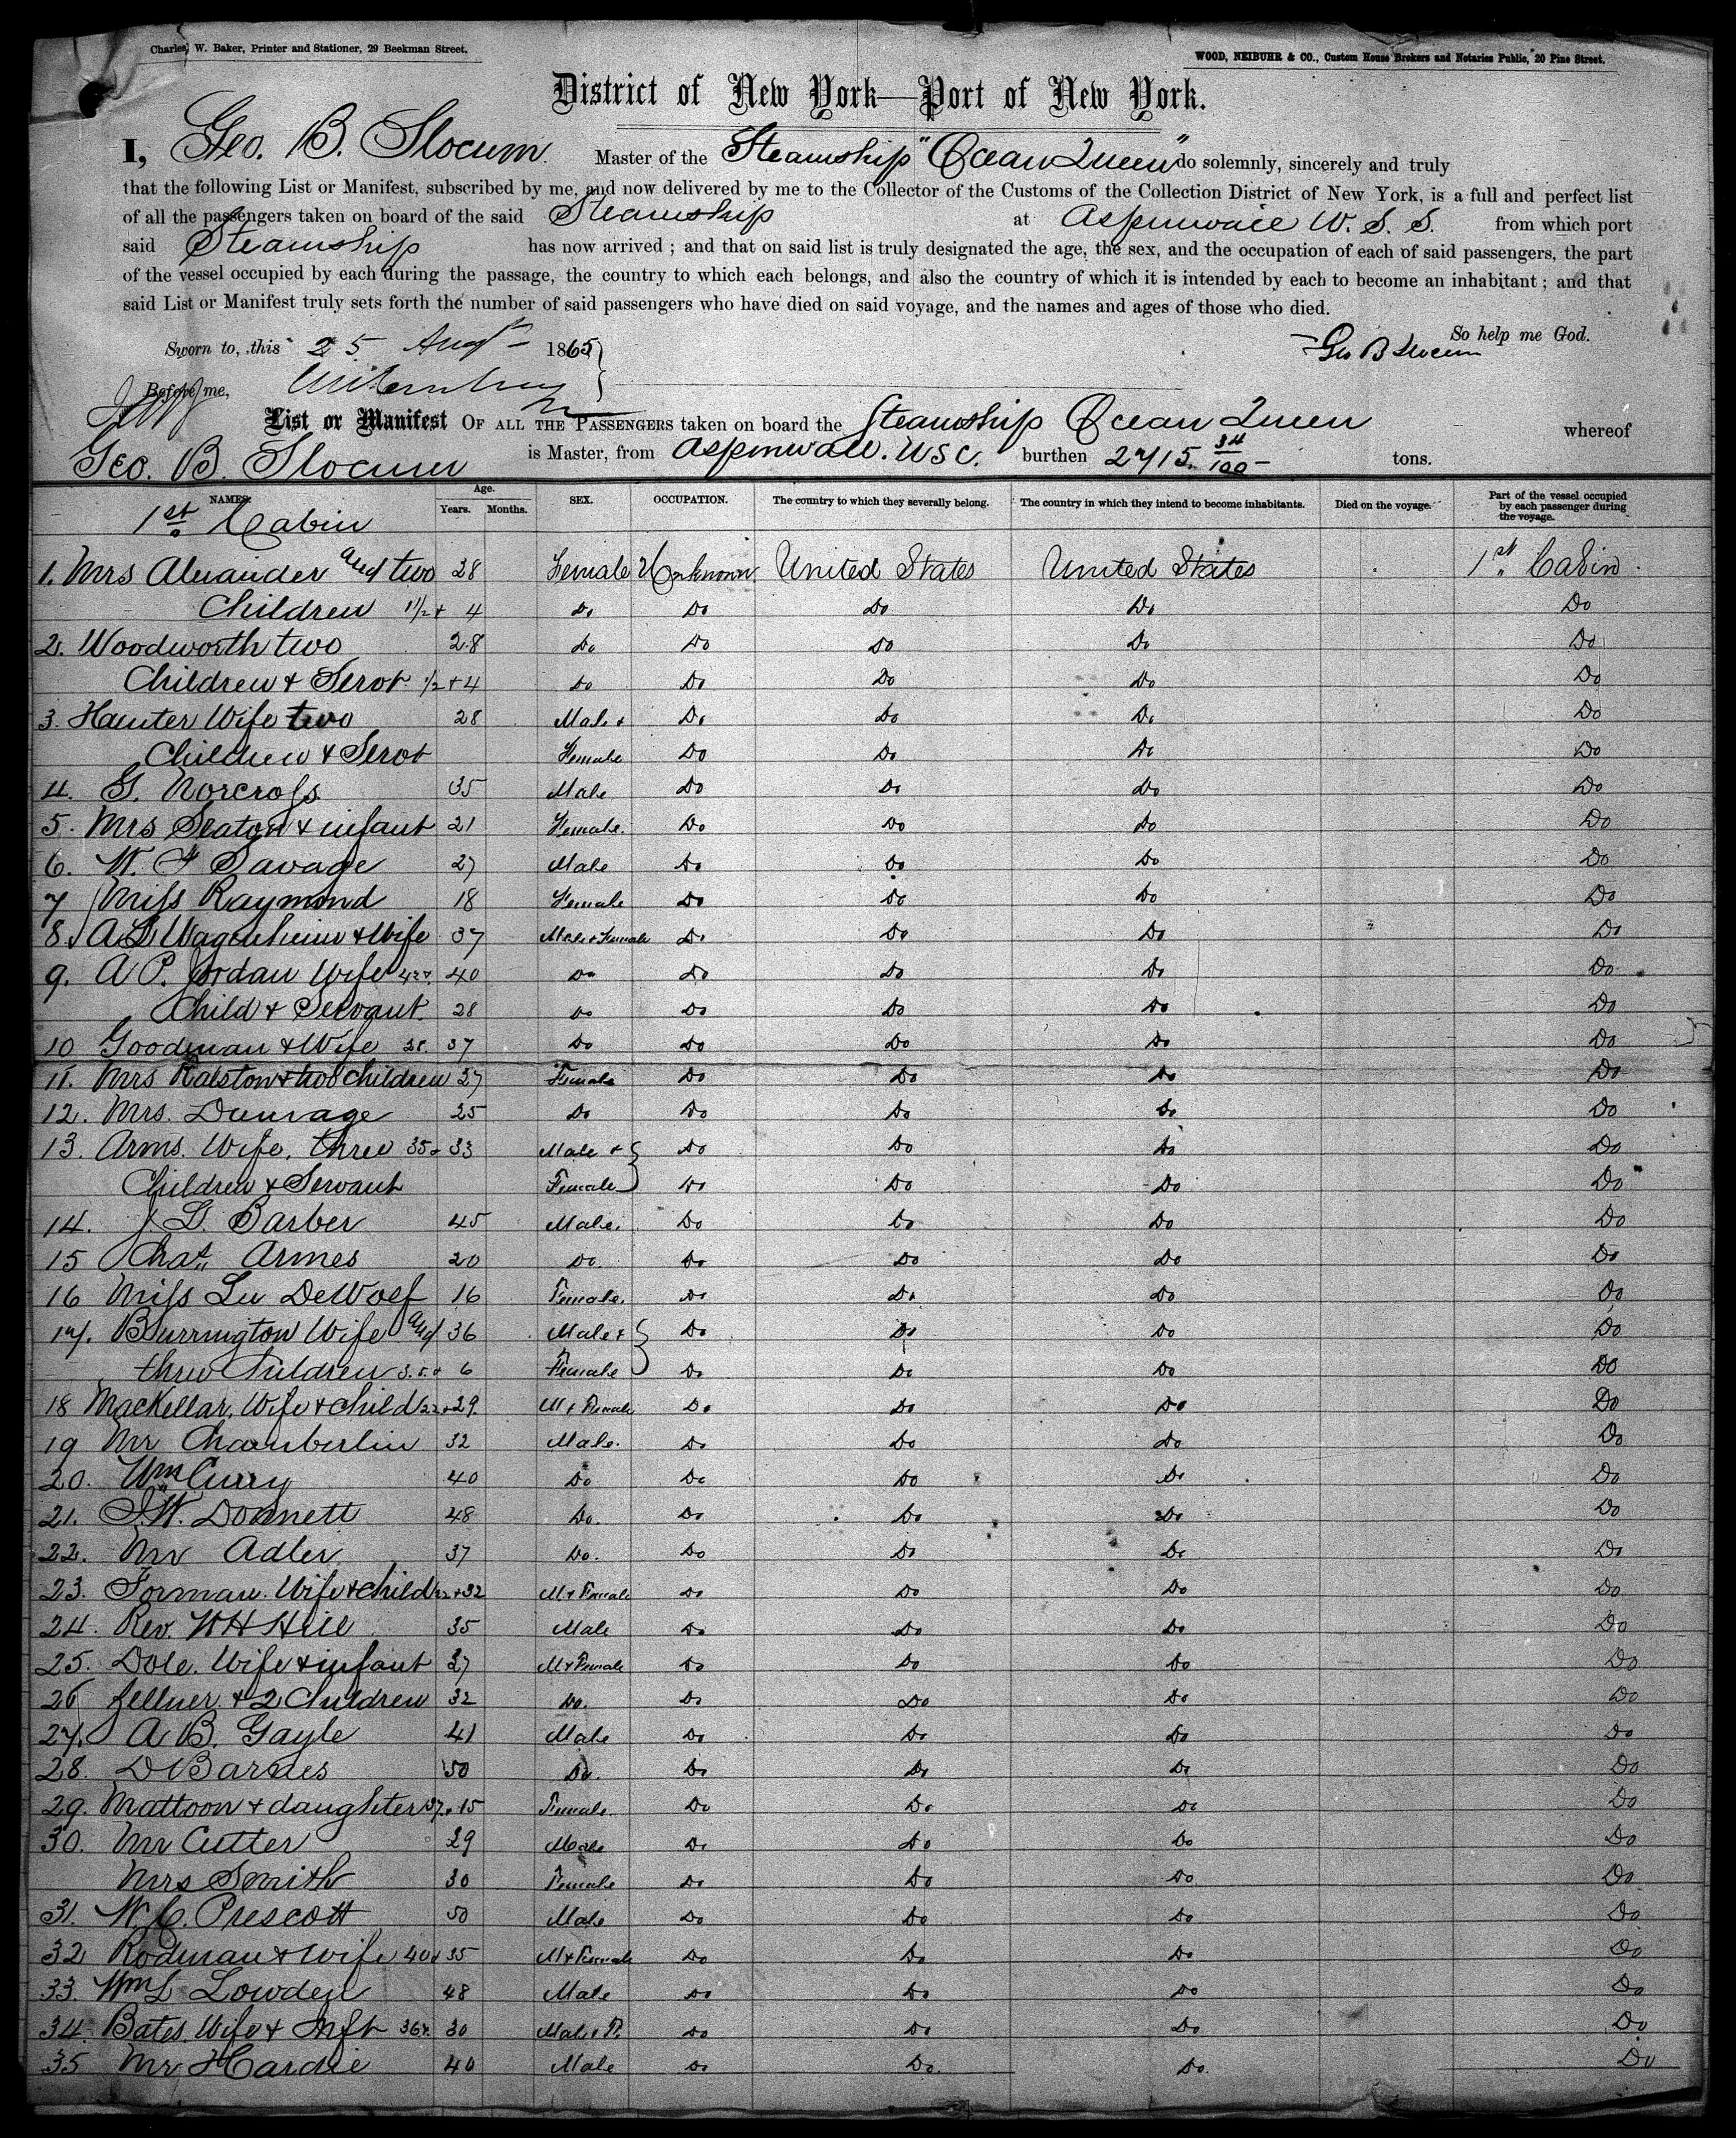 Charles W. Baker, Printer and Stationer, 29 Beekman Street.
WOOD, NEIBUHR & CO., Custom House Brokers and Notaries Public, 20 Pine Street.
District of New York—Port of New York.
I, Geo. B. Slocum Master of the Steamship "Ocean Queen" do solemnly, sincerely and truly
that the following List or Manifest, subscribed by me, and now delivered by me to the Collector of the Customs of the Collection District of New York, is a full and perfect list
of all the passengers taken on board of the said Steamship at Aspinwall from which port
said Steamship has now arrived; and that on said list is truly designated the age, the sex, and the occupation of each of said passengers, the part
of the vessel occupied by each during the passage, the country to which each belongs, and also the country of which it is intended by each to become an inhabitant; and that
said List or Manifest truly sets forth the number of said passengers who have died on said voyage, and the names and ages of those who died.
So help me God.
Sworn to, this 25 Augt 1865
Geo B Slocum
Before me,
List or Manifest OF ALL THE PASSENGERS taken on board the Steamship Ocean Queen whereof
Geo. B. Slocum is Master, from Aspinwall. burthen 2715 34/100 tons.
NAMES. Age. Years. Months. SEX. OCCUPATION. The country to which they severally belong. The country in which they intend to become inhabitants. Died on the voyage. Part of the vessel occupied by each passenger during the voyage.
1st Cabin
1. Mrs Alexander and two 28 Female Unknown United States United States 1st Cabin
Children 1 1/2 + 4 Do Do Do Do Do
2. Woodworth two 28 Do Do Do Do Do
Children + Servt 1/2 + 4 Do Do Do Do Do
3. Hunter Wife two 28 Male + Do Do Do Do
Children + Servt Female Do Do Do Do
4. G. Norcross 35 Male Do Do Do Do
5. Mrs Seaton + infant 21 Female. Do Do Do Do
6. W. F Savage 27 Male Do Do Do Do
7 Miss Raymond 18 Female Do Do Do Do
8. A L Wagenheim + Wife 37 Male + Female Do Do Do Do
9. A P. Jordan Wife 40 Do Do Do Do Do
Child + Servant. 28 Do Do Do Do Do
10 Goodman + Wife 28. 37 Do Do Do Do Do
11. Mrs Ralston + two children 27 Female Do Do Do Do
12. Mrs. Dunrage 25 Do Do Do Do Do
13. Arms. Wife. three 35 + 33 Male + Do Do Do Do
Children + Servant Female Do Do Do Do
14. J. L. Barber 45 Male. Do Do Do Do
15 Chas. Armes 20 Do. Do Do Do Do
16 Miss Lu DeWolf 16 Female. Do Do Do Do
17. Burrington Wife and 36 Male + Do Do Do Do
three Children 3. 5. + 6 Female Do Do Do Do
18 MacKellar. Wife + child 22 + 29 M + Female Do Do Do Do
19 Mr Chamberlin 32 Male. Do Do Do Do
20. Wm Curry 40 Do Do Do Do Do
21. J. W. Donnett 48 Do. Do Do Do Do
22. Mr Adler 37 Do. Do Do Do Do
23. Forman. Wife + child 22 + 32 M. + Female Do Do Do Do
24. Rev. W H Hill 35 Male Do Do Do Do
25. Dole. Wife + infant 27 M + Female Do Do Do Do
26 Zellner + 2 Children 32 Do. Do Do Do Do
27. A B. Gayle 41 Male Do Do Do Do
28. D Barnes 50 Do. Do Do Do Do
29. Mattoon + daughter 37. + 15 Female Do Do Do Do
30. Mr Cutter 29 Male Do Do Do Do
Mrs Smith 30 Female Do Do Do Do
31. W. C. Prescott 50 Male Do Do Do Do
32 Rodman + Wife 40 + 35 M + Female Do Do Do Do
33. Wm L Lowden 48 Male Do Do Do Do
34. Bates. Wife + Inft 36 + 30 Male + F. Do Do Do Do
35 Mr Hardie 40 Male Do Do. Do. Do